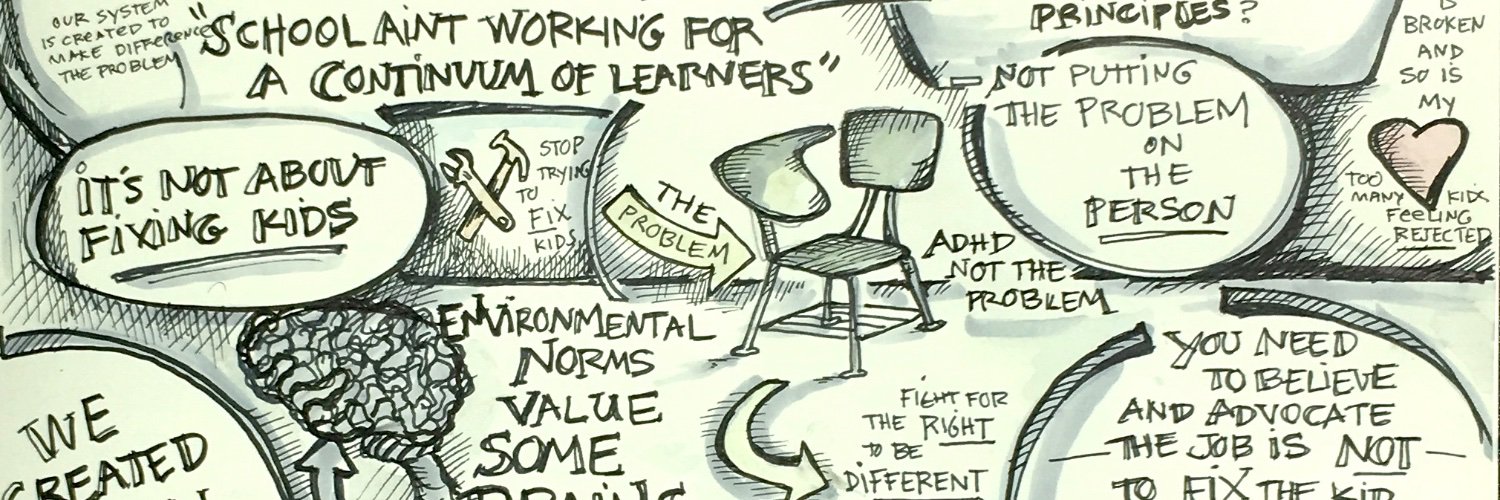 OUR SYSTEM
IS CREATED TO
MAKE DIFFERENCE
THE PROBLEM
"SCHOOL AINT WORKING FOR
A CONTINUUM OF LEARNERS"
PRINCIPLES?
NOT PUTTING
THE PROBLEM
ON
THE
PERSON
IS
BROKEN
AND
SO IS
MY
TOO
MANY KIDS
FEELING
REJECTED
IT'S NOT ABOUT
FIXING KIDS
STOP
TRYING
TO
FIX
KIDS
THE
PROBLEM
ADHD
NOT THE
PROBLEM
ENVIRONMENTAL
NORMS
VALUE
SOME
BRAINS
WE
CREATED
FIGHT FOR
THE RIGHT
TO BE
DIFFERENT
YOU NEED
TO BELIEVE
AND ADVOCATE
THE JOB IS NOT
TO FIX THE KID